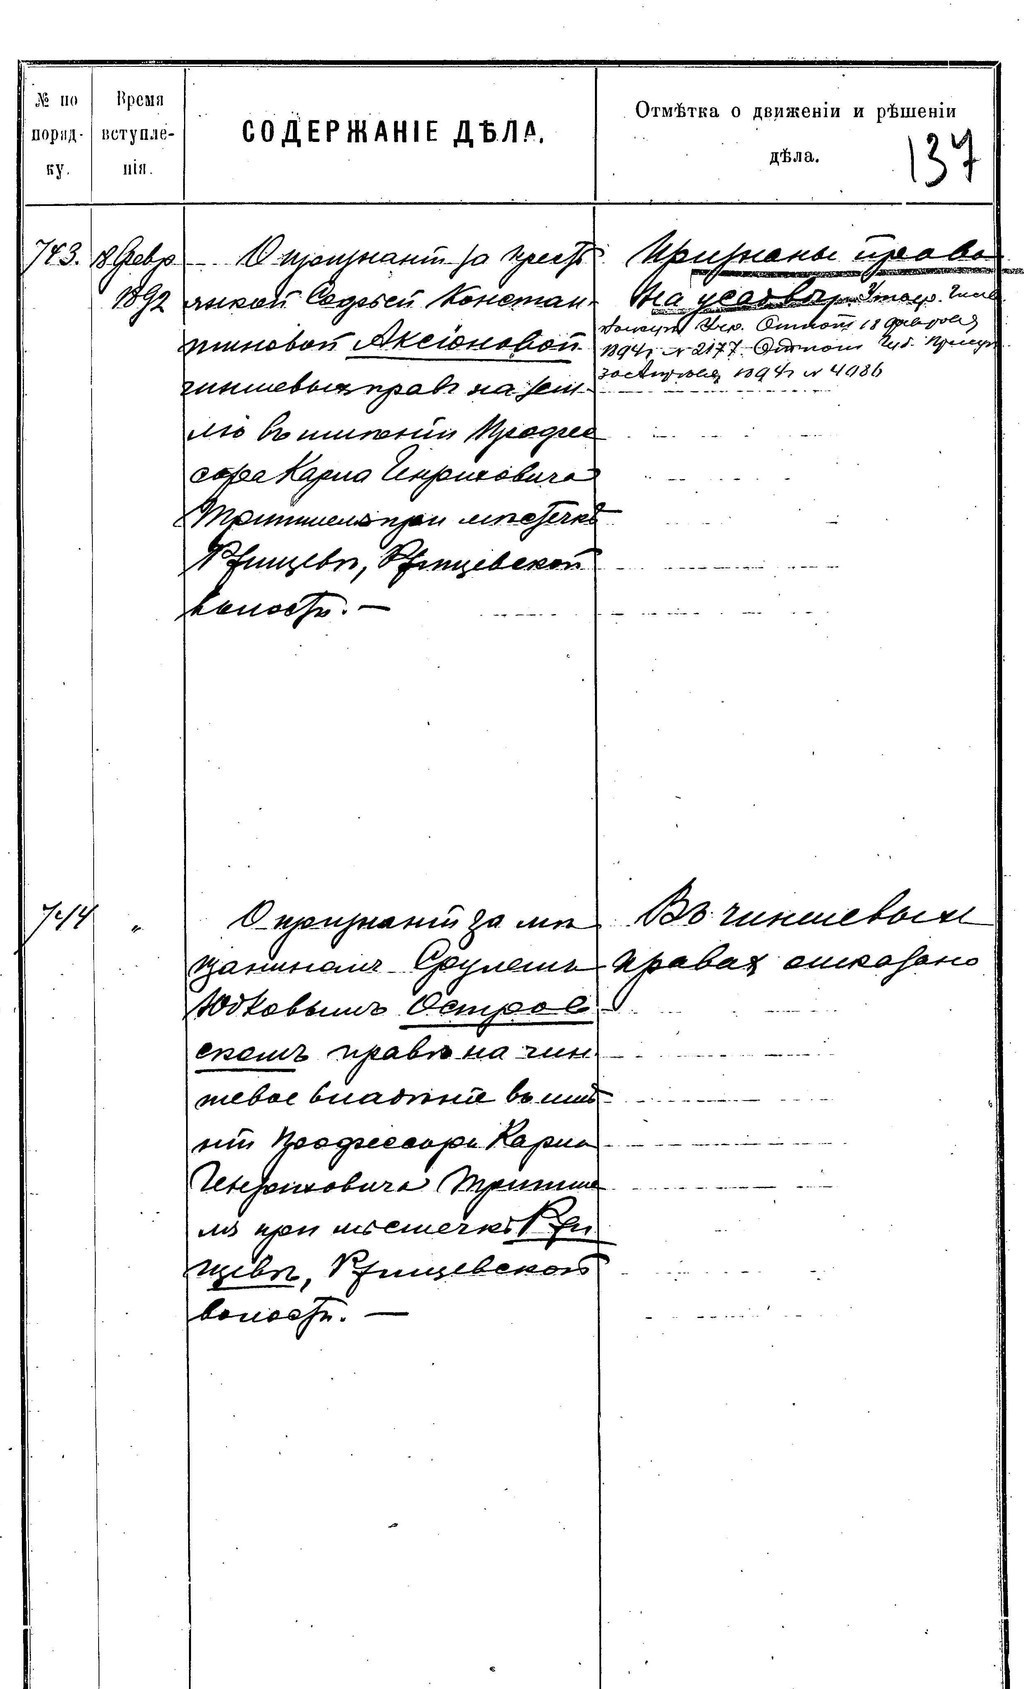 № по порядку.
Время вступленія.
СОДЕРЖАНІЕ ДѢЛА.
Отмѣтка о движеніи и рѣшеніи
дѣла.
137
743.
18 Февр
1892
О признаніи за кресть
янкой Софьей Констан
тиновой Аксіоновой
чиншевыхъ правъ на зем
лю въ имѣніи Профес
сора Карла Генриховича
Тритшеля при мѣстечкѣ
Ржищевѣ, Ржищевской
волости. —
Признаны права
на усадьбу.
18 Февраля
1894 г № 2177
30 Апрѣля 1894 г № 4086
744
"
О признаніи за мѣ
щаниномъ Срулемъ
Юдковымъ Островскомъ права на чин
шевое владѣніе въ имѣ
ніи Профессора Карла
Генриховича Тритше
ля при мѣстечкѣ Ржи
щевѣ, Ржищевской
волости. —
Въ чиншевыхъ
правах отказано